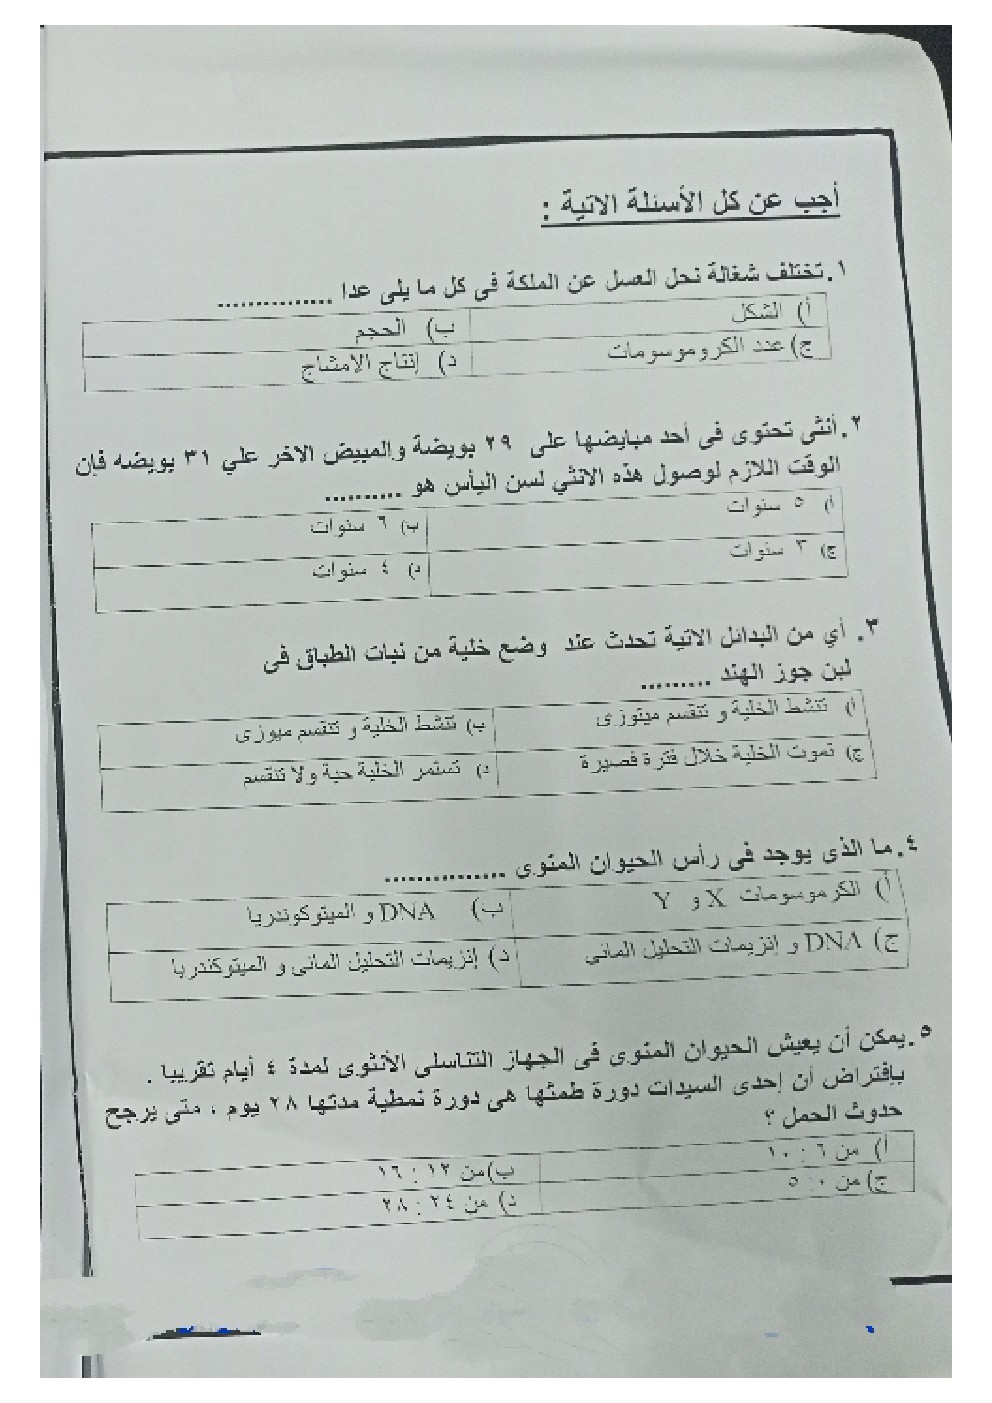 أجب عن كل الأسئلة الاتية :
١. تختلف شغالة نحل العسل عن الملكة فى كل ما يلى عدا ...............
أ) الشكل
ب) الحجم
ج) عدد الكروموسومات
د) إنتاج الامشاج
٢. أنثى تحتوى فى أحد مبايضها على ٢٩ بويضة والمبيض الاخر علي ٣١ بويضه فإن
الوقت اللازم لوصول هذه الانثي لسن اليأس هو ..........
أ) ٥ سنوات
ب) ٦ سنوات
ج) ٣ سنوات
د) ٤ سنوات
٣. أي من البدائل الاتية تحدث عند وضع خلية من نبات الطباق فى
لبن جوز الهند .........
أ) تنشط الخلية و تنقسم ميتوزى
ب) تنشط الخلية و تنقسم ميوزى
ج) تموت الخلية خلال فترة قصيرة
د) تستمر الخلية حية ولا تنقسم
٤. ما الذى يوجد فى رأس الحيوان المنوى ...............
أ) الكرموسومات X و Y
ب) DNA و الميتوكوندريا
ج) DNA و إنزيمات التحليل المائي
د) إنزيمات التحليل المائى و الميتوكندريا
٥. يمكن أن يعيش الحيوان المنوى فى الجهاز التناسلى الأنثوى لمدة ٤ أيام تقريبا .
بإفتراض أن إحدى السيدات دورة طمثها هى دورة نمطية مدتها ٢٨ يوم ، متى يرجح
حدوث الحمل ؟
أ) من ٦ : ١٠
ب) من ١٢ : ١٦
ج) من ٠ : ٥
د) من ٢٤ : ٢٨